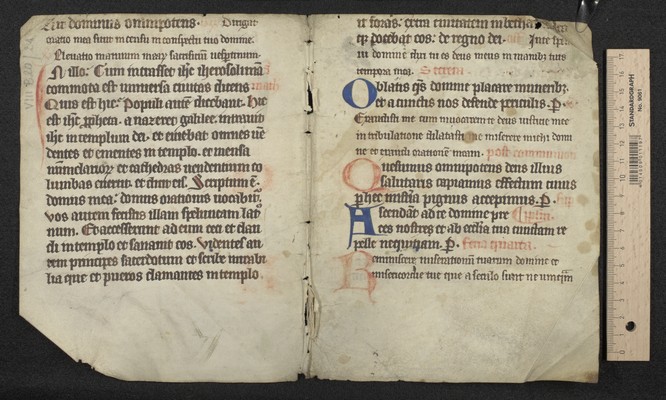 dominus omnipotens. Dirigat
oratio mea sicut incensu in conspectu tuo domine.
Eleuatio manuum mearu sacrificiū uespertinum.
In illo. Cum intrasset ihc iherosolimā
commota est uniuersa ciuitas dicens
Quis est hic. Populi autē dicebant. hic
est ihc ꝓpheta. a nazareth galilee. intrauit
ihc in templum dei. et eiciebat omnes uē
dentes et ementes in templo. et mensas
nummularioꝝ et cathedras uendentium co
lumbas euertit. et dixit eis. Scriptum ē.
domus mea. domus orationis uocabit᷑.
vos autem fecistis illam speluncam lat
num. Et accesserunt ad eum ceci et clau
di in templo et sanauit eos. Videntes au
tem principes sacerdotum et scribe mirabi
lia que et pueros clamantes in templo.
it foras. extra ciuitatem in
docebat eos. de regno dei.
domine dixi tu es deus meus in manibꝫ tuis
tempora mea. Secreta
Oblatis qs domine placare muneribꝫ.
et a cunctis nos defende periculis. P.
Exaudisti me cum inuocarem te deus iusticie mee
in tribulatione dilatasti me miserere michi domi
ne et exaudi orationem meam. post communion
Quesumus omnipotens deus illius
salutaris capiamus effectum cuius
per hec misteria pignus accepimus. P.
Ascendāt ad te domine pre
ces nostres et ab ecclia tua cunctam re
pelle nequitiam. P. feria quarta.
Reminiscere miserationū tuarum domine et
misericordie tue que a seculo sunt ne umquam
STANDARDGRAPH